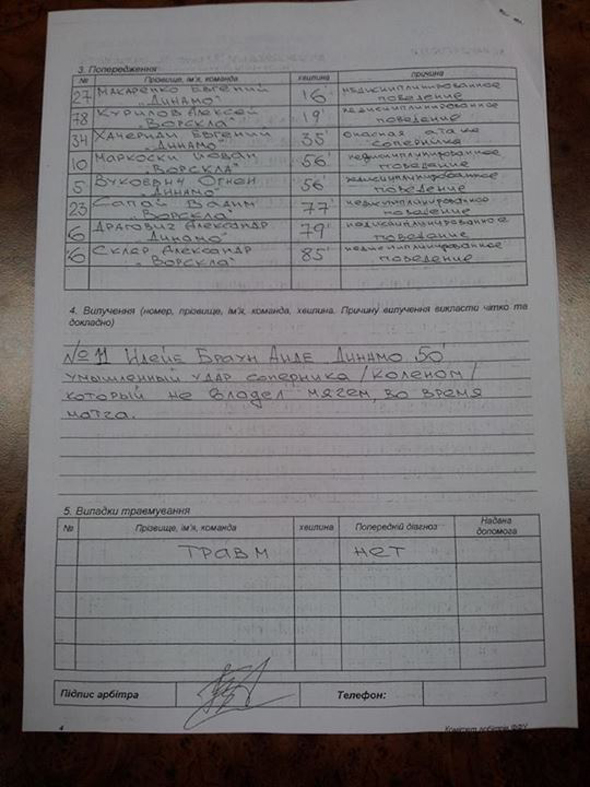 3. Попередження
№ Прізвище, ім'я, команда хвилина причина
27 Макаренко Евгений „Динамо“ 16' недисциплинированное поведение
78 Курилов Алексей „Ворскла“ 19' недисциплинированное поведение
34 Хачериди Евгений „Динамо“ 35' опасная атака соперника
10 Маркоски Йован „Ворскла“ 56' недисциплинированное поведение
5 Вукоевич Огнен „Динамо“ 56' недисциплинированное поведение
23 Сапай Вадим „Ворскла“ 77' недисциплинированное поведение
6 Драгович Александр „Динамо“ 79' недисциплинированное поведение
6 Скляр Александр „Ворскла“ 85' недисциплинированное поведение
4. Вилучення (номер, прізвище, ім'я, команда, хвилина. Причину вилучення викласти чітко та
докладно)
№ 11 Идейе Браун Аиде Динамо 50'
умышленный удар соперника /коленом/
который не владел мячем, во время
матча.
5. Випадки травмування
№ Прізвище, ім'я, команда хвилина Попередній діагноз Надана допомога
травм нет
Підпис арбітра Телефон:
4 Комітет арбітрів ФФУ